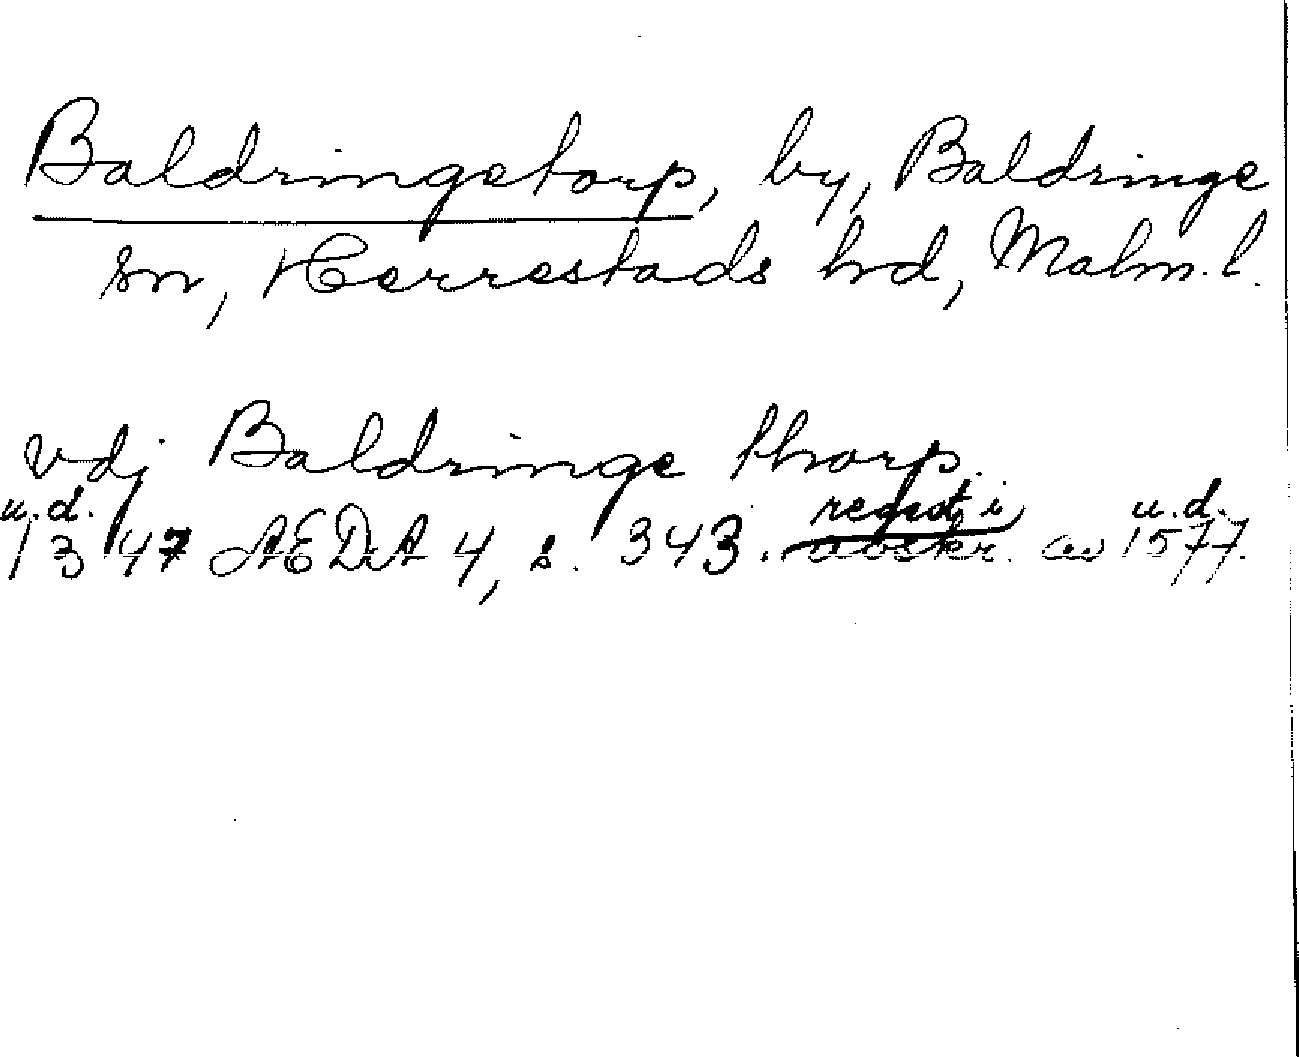 Baldringetorp, by, Baldringe
sn, Herrestads hd, Malm. l.
vdj Baldringe thorp.
u.d. regist i u.d.
1347 AEDA 4, s. 343. avskr. av 1577.